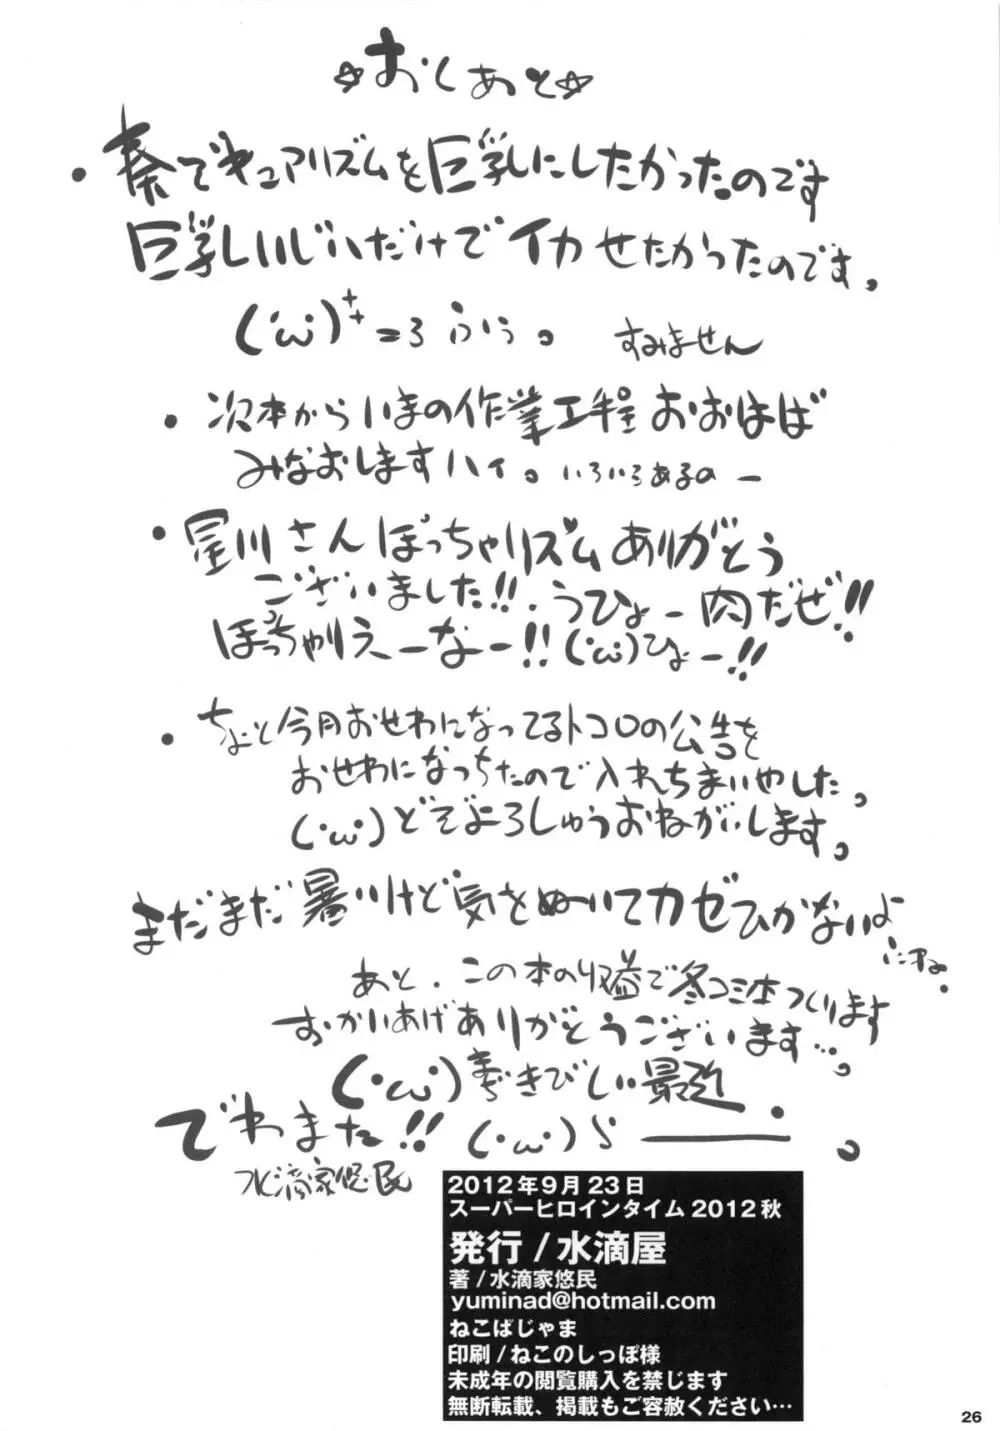 ☆おしあと☆
・奏でキュアリズムを巨乳にしたかったのです
巨乳しいじいだけでイカせたかったのです。
(・ω・)++=3 ふぅ。 すみません
・次本からいまの作業工程おおはば
みなおしますハイ。いろいろあるのー
・星川さんぽっちゃりズムありがとう
ございました!!. うひょー肉だぜ!!
ぽっちゃりえーなー!!(・ω・)ひょー!!
・ちょと今月おせわになってるトコロの公告を
おせわになっちたので入れちまいやした。
(・ω・)どぞよろしゅうおねがいします。
まだまだ暑いけど気をぬいてカゼひかないよ
にね。
あと、この本の収益で冬コミ本つくります
おかいあげありがとうございます…。
(・ω・)きびしい最近
でわまた!!(・ω・)ゝ
水滴家悠民
2012年9月23日
スーパーヒロインタイム2012秋
発行/水滴屋
著/水滴家悠民
yuminad@hotmail.com
ねこばじゃま
印刷/ねこのしっぽ様
未成年の閲覧購入を禁じます
無断転載、掲載もご容赦ください…
26